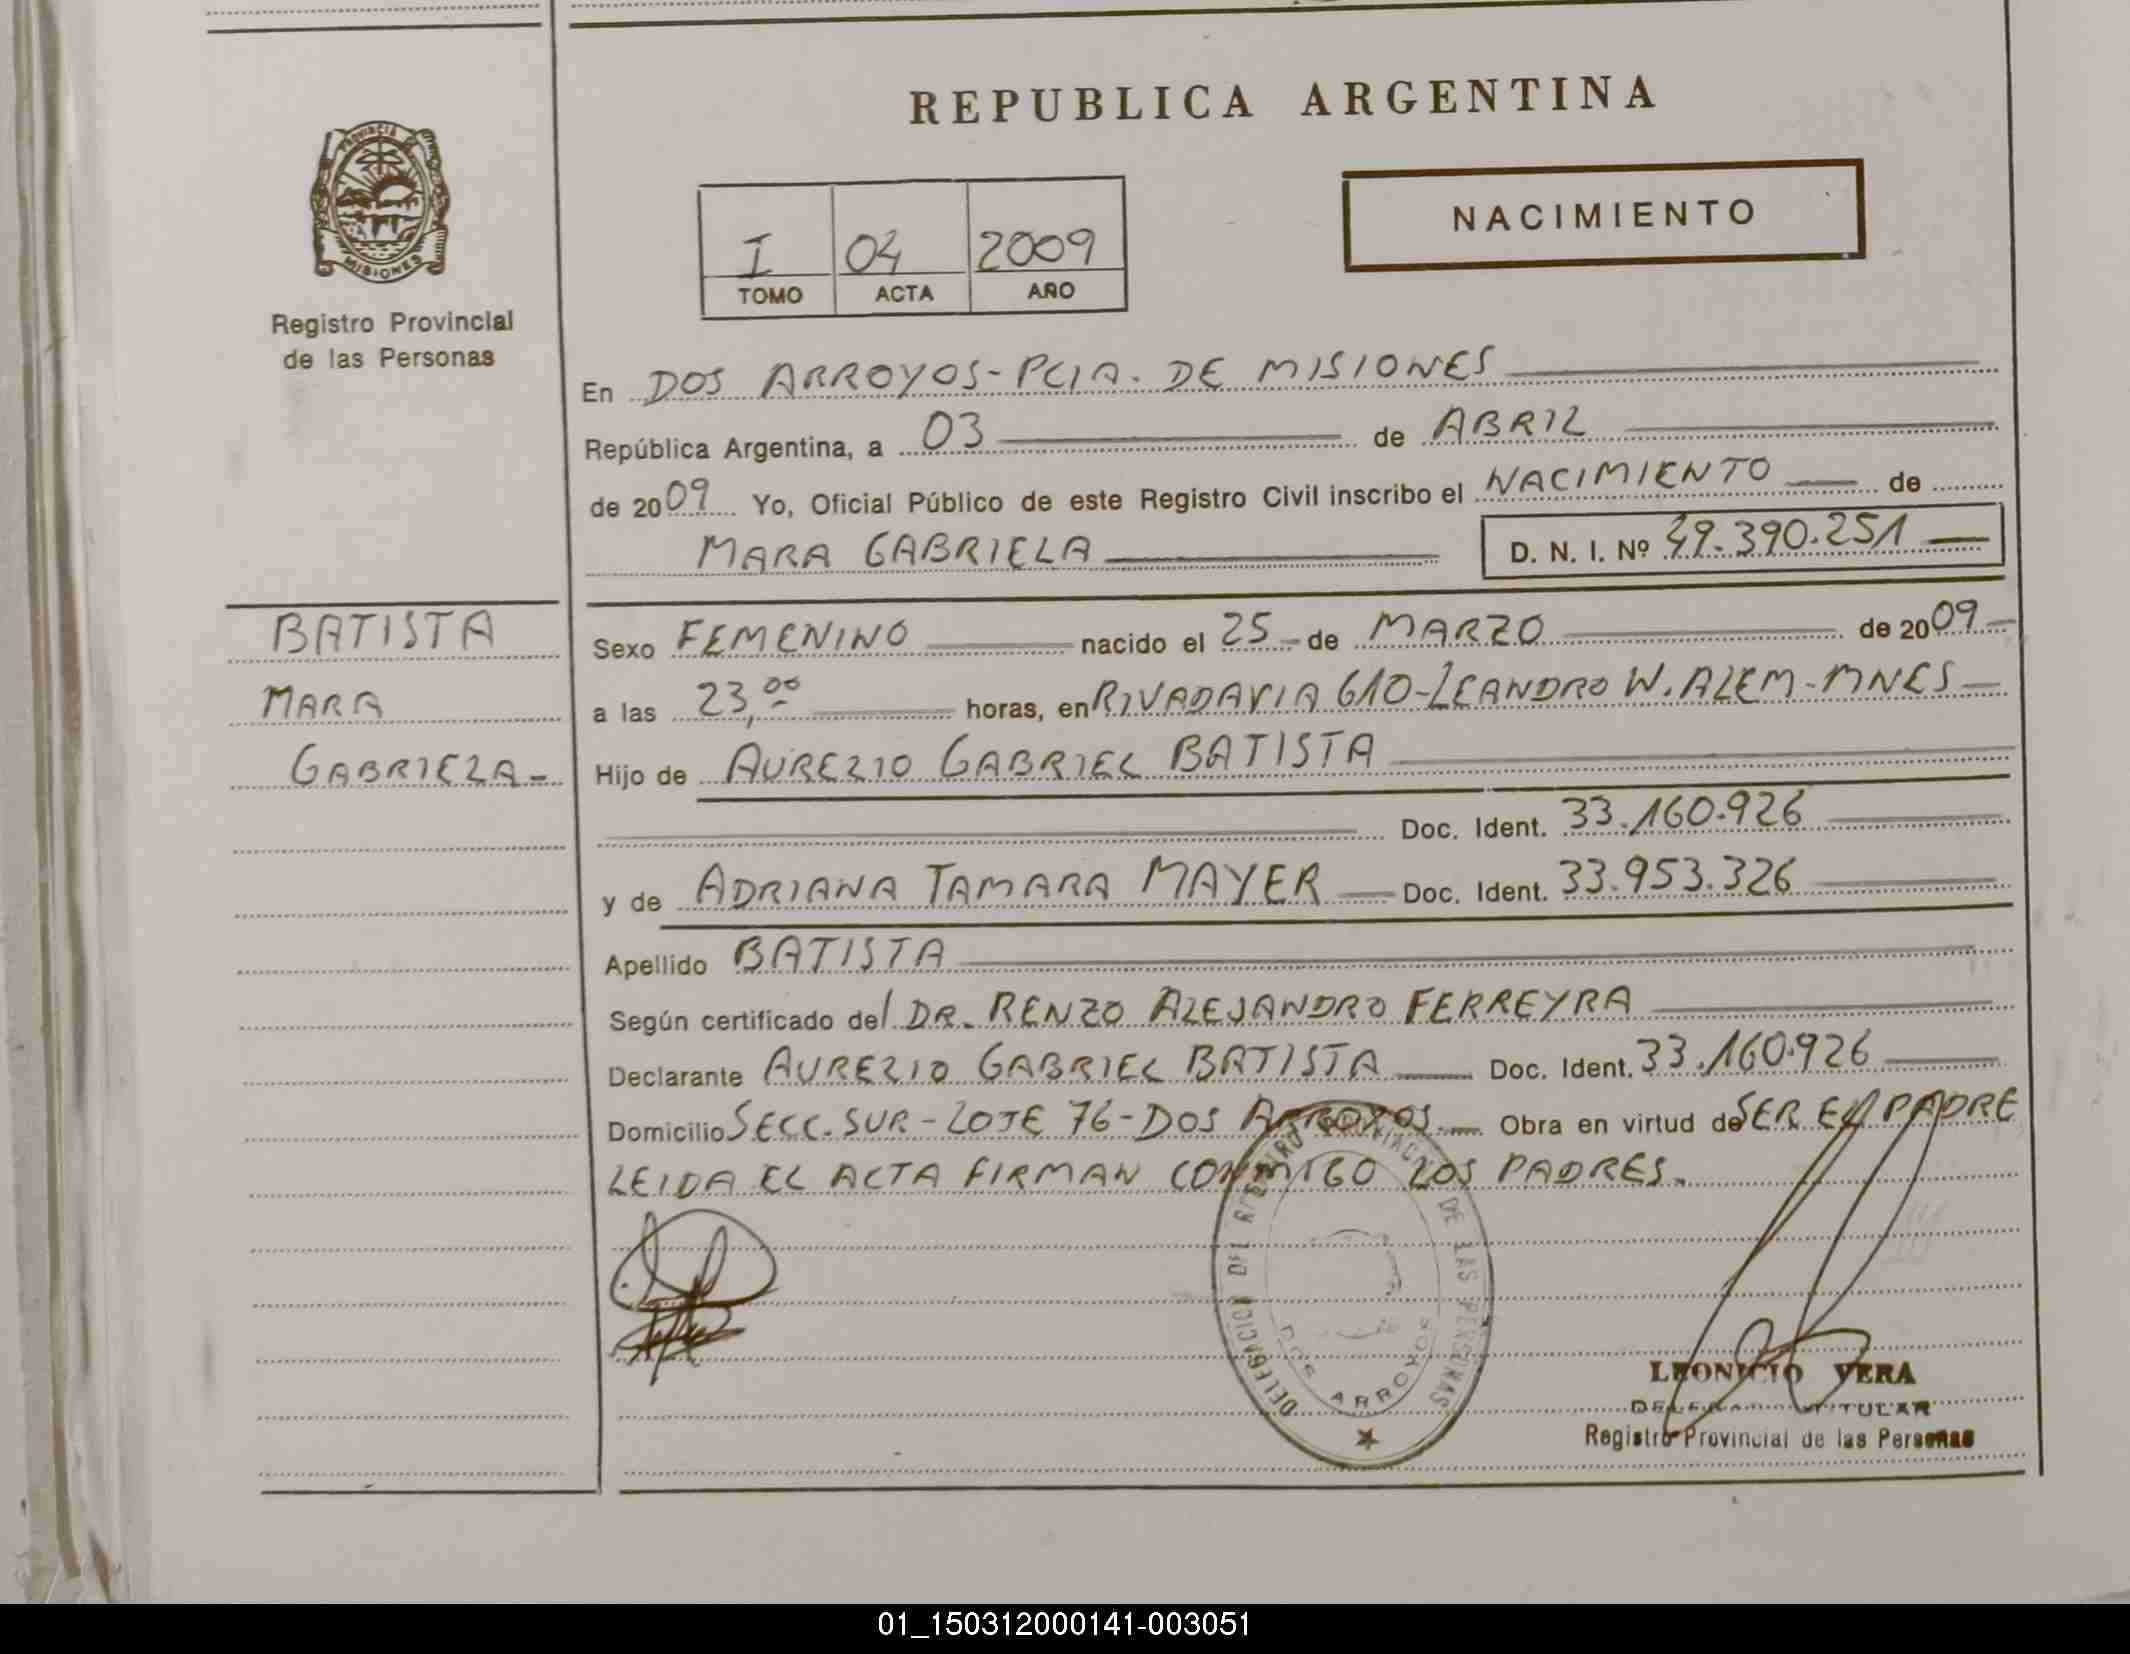 REPUBLICA ARGENTINA
PROVINCIA DE MISIONES
Registro Provincial
de las Personas
I 04 2009
TOMO ACTA AÑO
NACIMIENTO
En DOS ARROYOS-PCIA. DE MISIONES
República Argentina, a 03 de ABRIL
de 2009 Yo, Oficial Público de este Registro Civil inscribo el NACIMIENTO de
MARA GABRIELA D. N. I. Nº 49.390.251
BATISTA
MARA
GABRIELA-
Sexo FEMENINO nacido el 25 de MARZO de 2009
a las 23,00 horas, en RIVADAVIA 610-LEANDRO W. ALEM-MNES
Hijo de AURELIO GABRIEL BATISTA
Doc. Ident. 33.160.926
y de ADRIANA TAMARA MAYER Doc. Ident. 33.953.326
Apellido BATISTA
Según certificado del DR. RENZO ALEJANDRO FERREYRA
Declarante AURELIO GABRIEL BATISTA Doc. Ident. 33.160.926
Domicilio SECC. SUR-LOTE 76-DOS ARROYOS Obra en virtud de SER EL PADRE
LEIDA EL ACTA FIRMAN CONMIGO LOS PADRES.
DELEGACION DEL REGISTRO PROVINCIAL DE LAS PERSONAS
DOS ARROYOS
LEONICIO VERA
DELEGADO TITULAR
Registro Provincial de las Personas
01_150312000141-003051